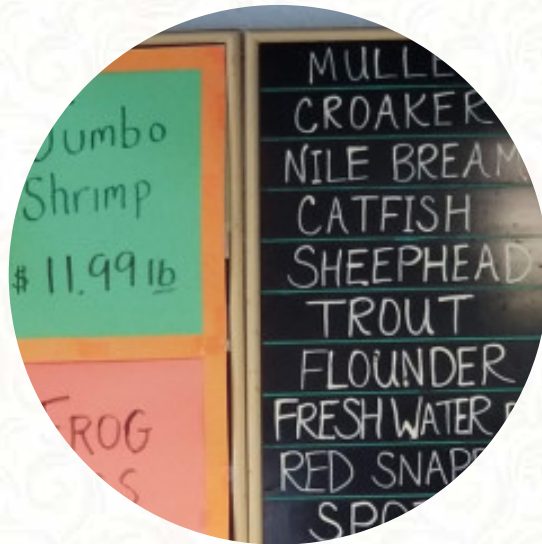 Jumbo
Shrimp
$ 11.99 lb
FROG
MULLE
CROAKER
NILE BREAM
CATFISH
SHEEPHEAD
TROUT
FLOUNDER
FRESH WATER
RED SNAP
SPOT